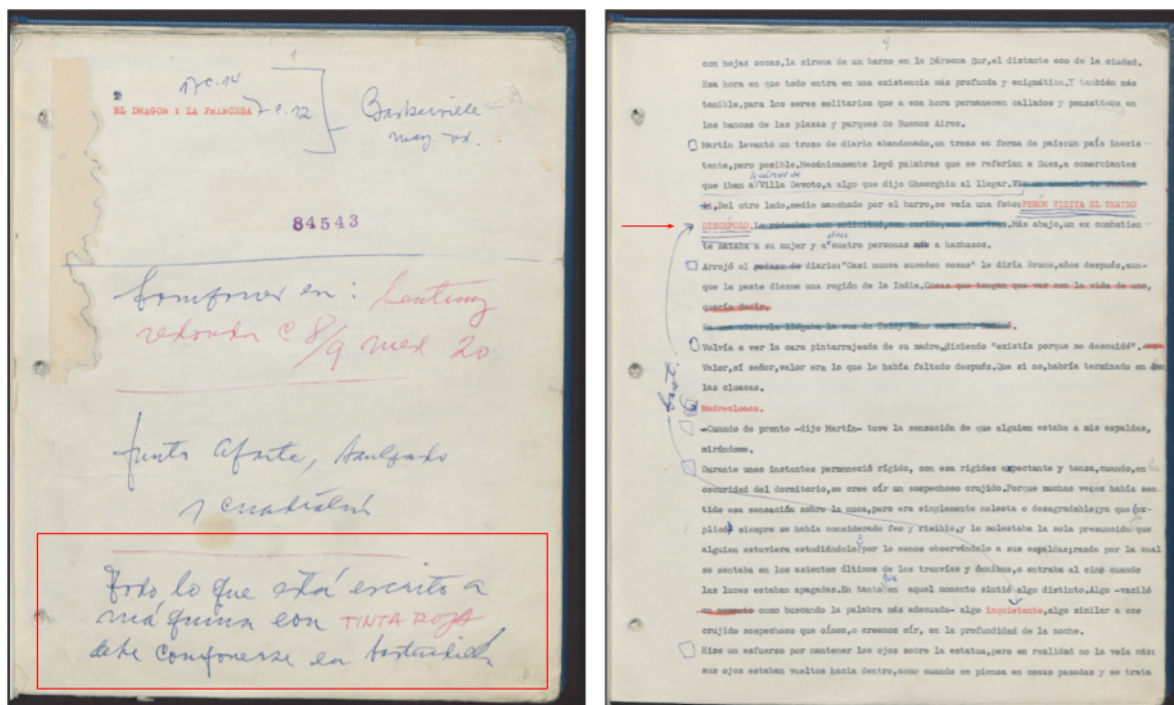 1
17 c. 14
EL DRAGON Y LA PRINCESA 7 c. 12
Baskerville
may. rx.
84543
Componer en: Century
redonda c 8/9 med 20
punto aparte, sangrado
y cuadratín
Todo lo que está escrito a
máquina con TINTA ROJA
debe componerse en bastardilla
4
con hojas secas, la sirena de un barco en la Dársena Sur,el distante eco de la ciudad.
Esa hora en que todo entra en una existencia más profunda y enigmática.Y también más
temible,para los seres solitarios que a esa hora permanecen callados y pensativos en
los bancos de las plazas y parques de Buenos Aires.
Martín levantó un trozo de diario abandonado,un trozo en forma de país:un país inexis
tente,pero posible.Mecánicamente leyó palabras que se referían a Suez,a comerciantes
la cárcel de
que iban a Villa Devoto,a algo que dijo Gheorghiu al llegar.
Del otro lado,medio manchado por el barro,se veía una foto:PERÓN VISITA EL TEATRO
DISCÉPOLO.La rodeaban con solicitud,con cariño,con sonrisas.Más abajo,un ex combatien
otras
te mataba a su mujer y a cuatro personas más a hachazos.
Arrojó el diario:"Casi nunca suceden cosas" le diría Bruno,años después,aun-
que la peste diezme una región de la India.Cosas que tengan que ver con la vida de uno,
quería decir.
En una victrola llegaba la voz de
Volvía a ver la cara pintarrajeada de su madre,diciendo "existís porque me descuidé".
Valor,sí señor,valor era lo que le había faltado después.Que si no,habría terminado en
las cloacas.
Madrecloaca.
-Cuando de pronto -dijo Martín- tuve la sensación de que alguien estaba a mis espaldas,
mirándome.
Durante unos instantes permaneció rígido, con esa rigidez expectante y tensa,cuando,en
oscuridad del dormitorio,se cree oír un sospechoso crujido.Porque muchas veces había sen
tido esa sensación sobre la nuca,pero era simplemente molesta o desagradable;ya que (ex-
plicó) siempre se había considerado feo y risible,y lo molestaba la sola presunción que
alguien estuviera estudiándolo o por lo menos observándolo a sus espaldas;razón por la cual
se sentaba en los asientos últimos de los tranvías y ómnibus,o entraba al cine cuando
que
las luces estaban apagadas.En tanto en aquel momento sintió algo distinto.Algo -vaciló
un momento como buscando la palabra más adecuada- algo inquietante,algo similar a ese
crujido sospechoso que oímos,o creemos oír, en la profundidad de la noche.
Hizo un esfuerzo por mantener los ojos sobre la estatua,pero en realidad no la veía más:
sus ojos estaban vueltos hacia dentro,como cuando se piensa en cosas pasadas y se trata